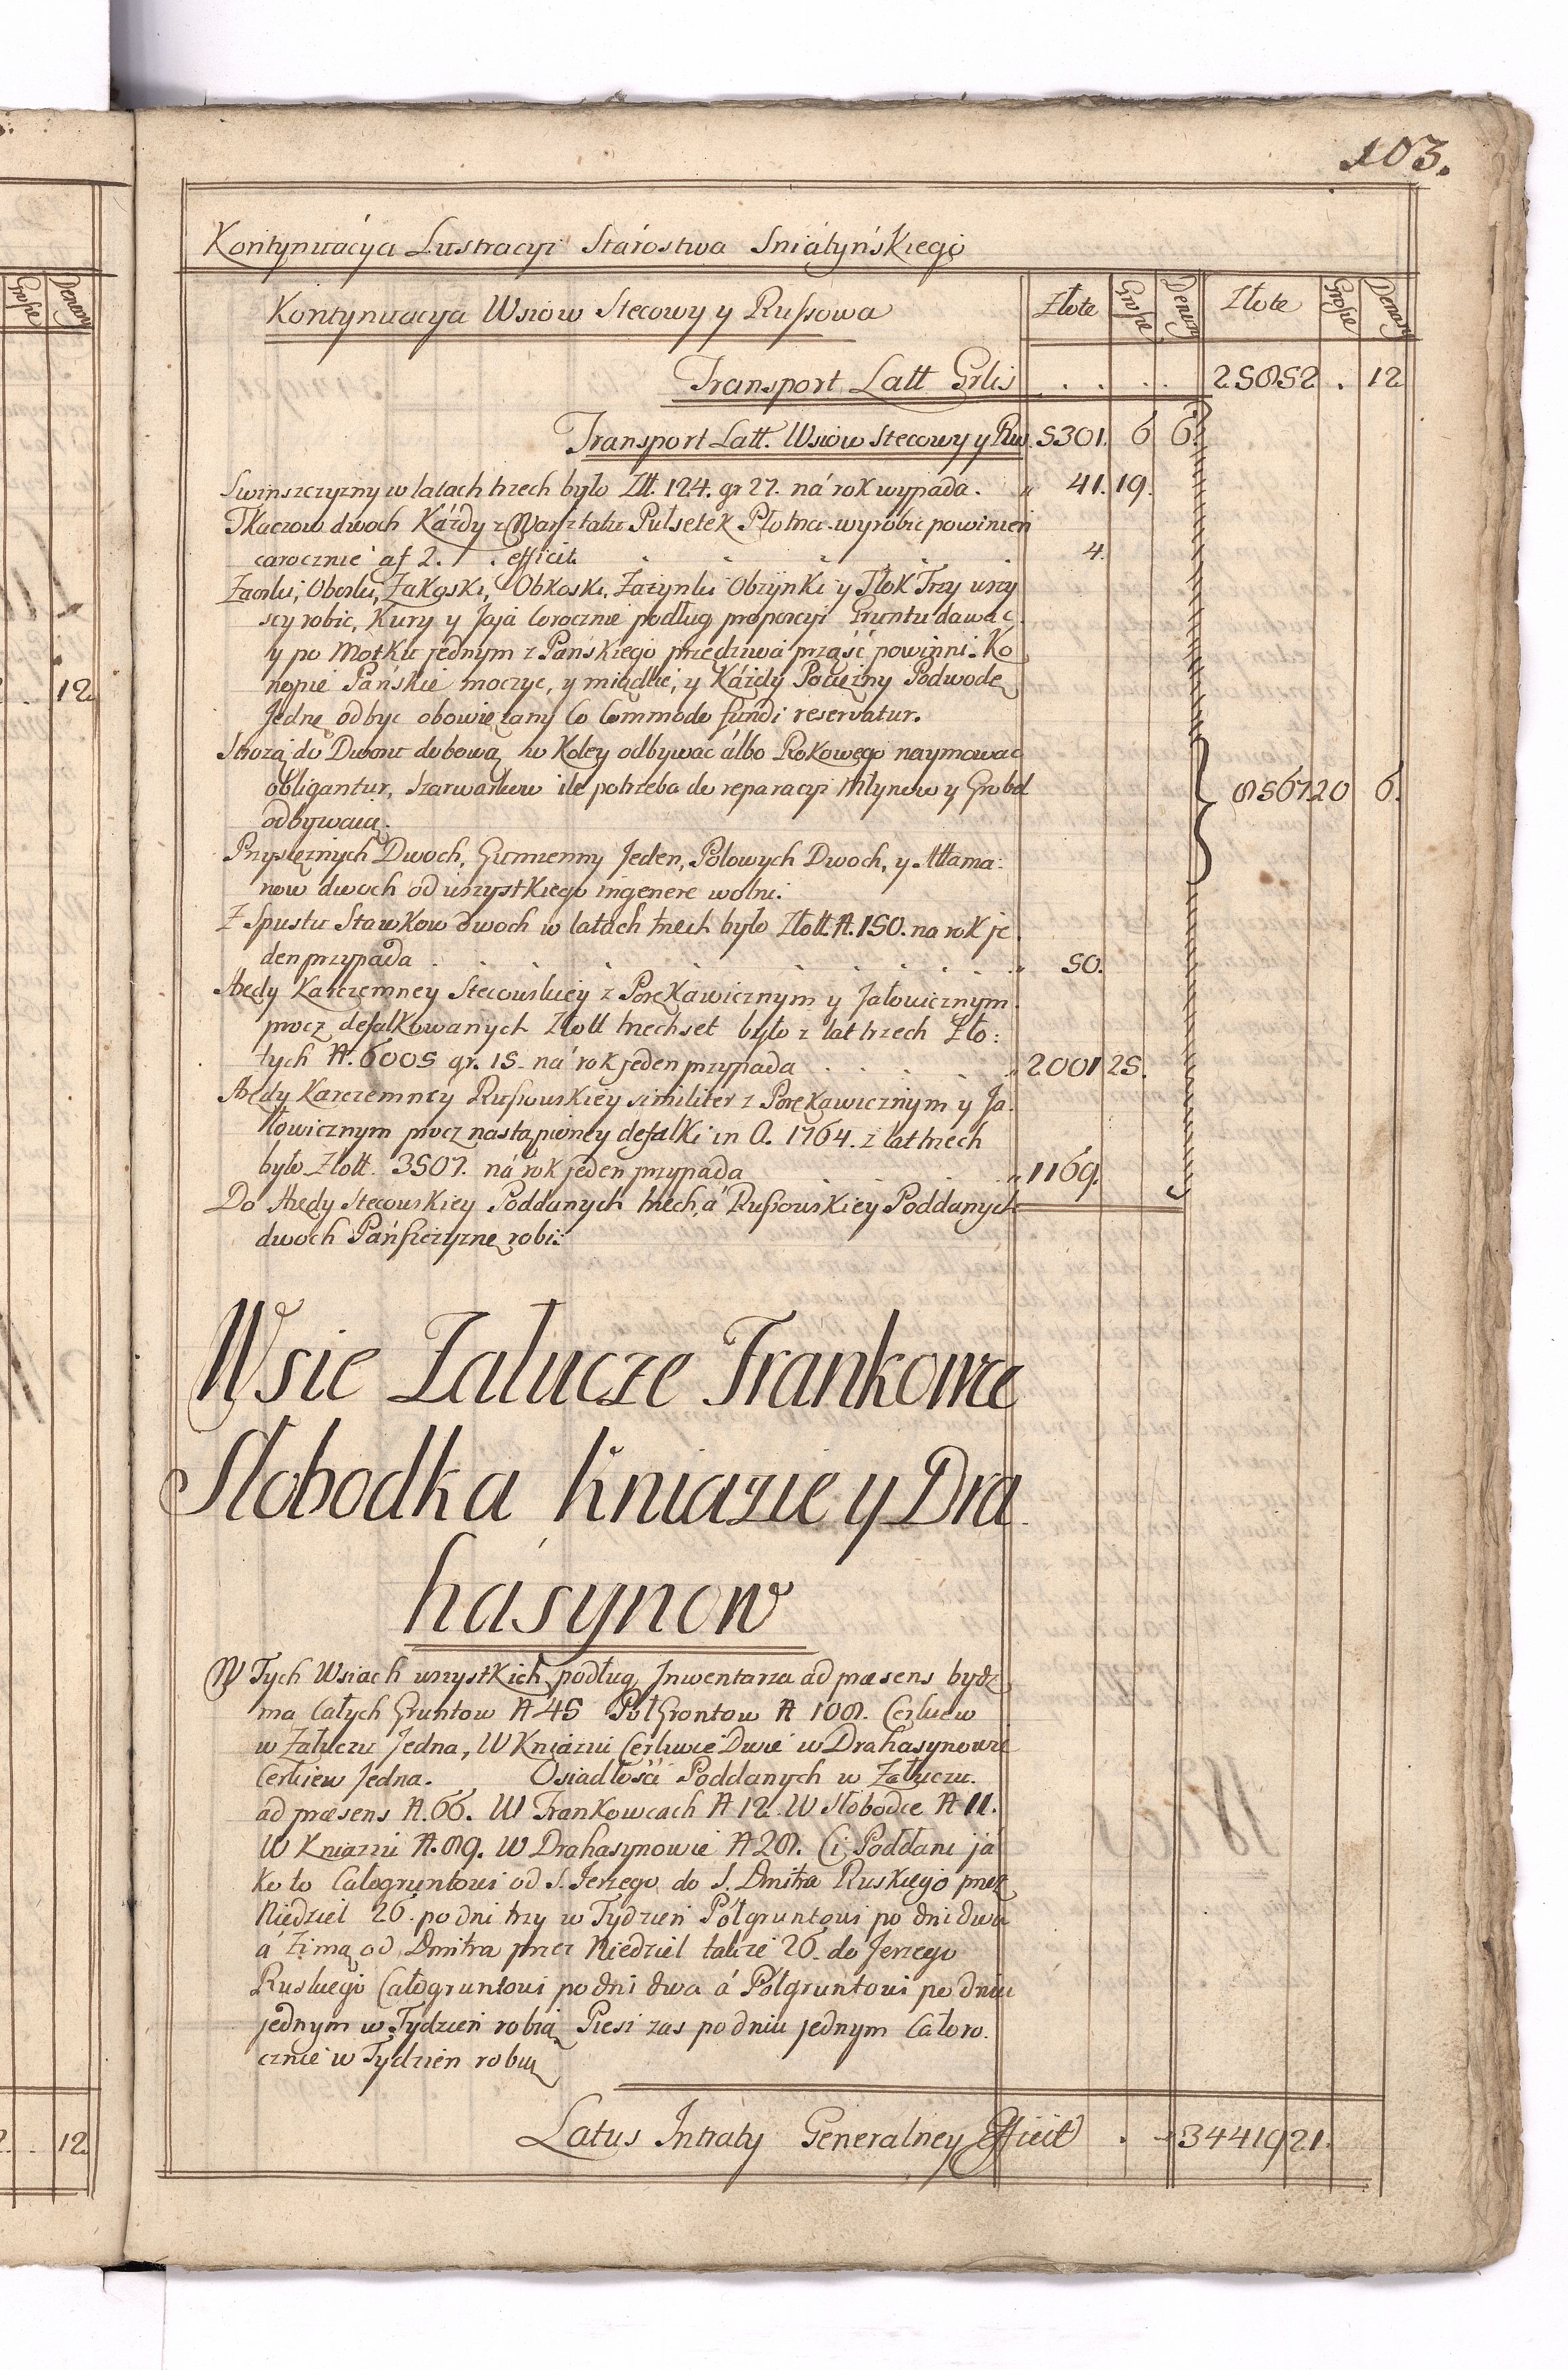 103.
Kontynuácya Lustracyi Stárostwa Sniátyńskiego
Kontynuacya Wsiow Stecowy y Rußowa Złote Grosze Denary Złote Grosze Denary
Transport Latt Grlis . . . . 25852 . 12
Transport Latt. Wsiow Stecowy y Ruß. 5301. 6 6.
Swinszczyzny w latach trzech było Złt. 124. gr 27. ná rok wypada. " 41. 19.
Tkaczow dwoch Káżdy z Warsztatu Pułsetek Płotna wyrobic powinien
corocznie af 2. . efficit. 4.
Zaorki, Oborki, Zakoski, Obkoski, Zażynki Obżynki y Tłok Trzy wszy
scy robic, Kury y Jaja Corocznie podług proporcyi Gruntu dawac
y po Motku jednym z Pańskiego przędziwa prząść powinni. Ko
nopie Pańskie moczyc, y międlic, y Káżdy Pociężny Podwodę
Jednę odbyc obowięzany Co Commodo fundi reservatur.
Strożą do Dworu dobową w Koley odbywac álbo Rokowego naymowac
obligantur, szarwarkow ile potrzeba do reparacyi Młynow y Grobel 8567 20 6.
odbywaią.
Przysięznych Dwoch, Gumienny Jeden, Polowych Dwoch, y Attama:
now dwoch od wszystkiego ingenere wolni.
Z Spustu Stawkow dwoch w latach trzech było Złott. N. 150. na rok je
den przypada . . . . " 50.
Arędy Karczemney Stecowskiey z Porękawicznym y Jałowicznym
procz defalkowanych Złott trzechset było z lat trzech Zło:
tych N. 6005 gr. 15. ná rok jeden przypada . . . . " 2001 25.
Arędy Karczemney Rußowskiey similiter z Porękawicznym y Ja
łowicznym procz nastąpioney defalki in A. 1764. z lat trzech
było Złott. 3507. ná rok jeden przypada . . " 1169.
Do Arędy Stecowskiey Poddanych trzech, á Rußowskiey Poddanych
dwoch Pánsczyznę robi:
Wsie Załucze Trankowce
Słobodka Kniazie y Dra
hásynow
W Tych Wsiach wszystkich podług Jnwentarza ad præsens bydz
ma Całych Gruntow N 45 PołGrontow N 108. Cerkiew
w Załuczu Jedna, W Kniaziu Cerkwie Dwie w Drahasynowie
Cerkiew Jedna. Osiadłośći Poddanych w Załuczu.
ad præsens N. 66. W Trankowcach N 12. W Słobodce N 11.
W Kniaziu N. 89. W Drahasynowie N 28. Ci Poddani já
ko to Całogruntowi od S. Jerzego do S. Dmitra Ruskiego przez
Niedziel 26. po dni trzy w Tydzień Pólgruntowi po dni dwa
á Zimą od Dmitra przez Niedziel także 26. do Jerzego
Ruskiego Całogruntowi po dni dwa á Pólgruntowi po dniu
jednym w Tydzień robią Piesi zas po dniu jednym Całoro.
cznie w Tydzień robią
Latus Intráty Generalney Efficit . . 34419 21.